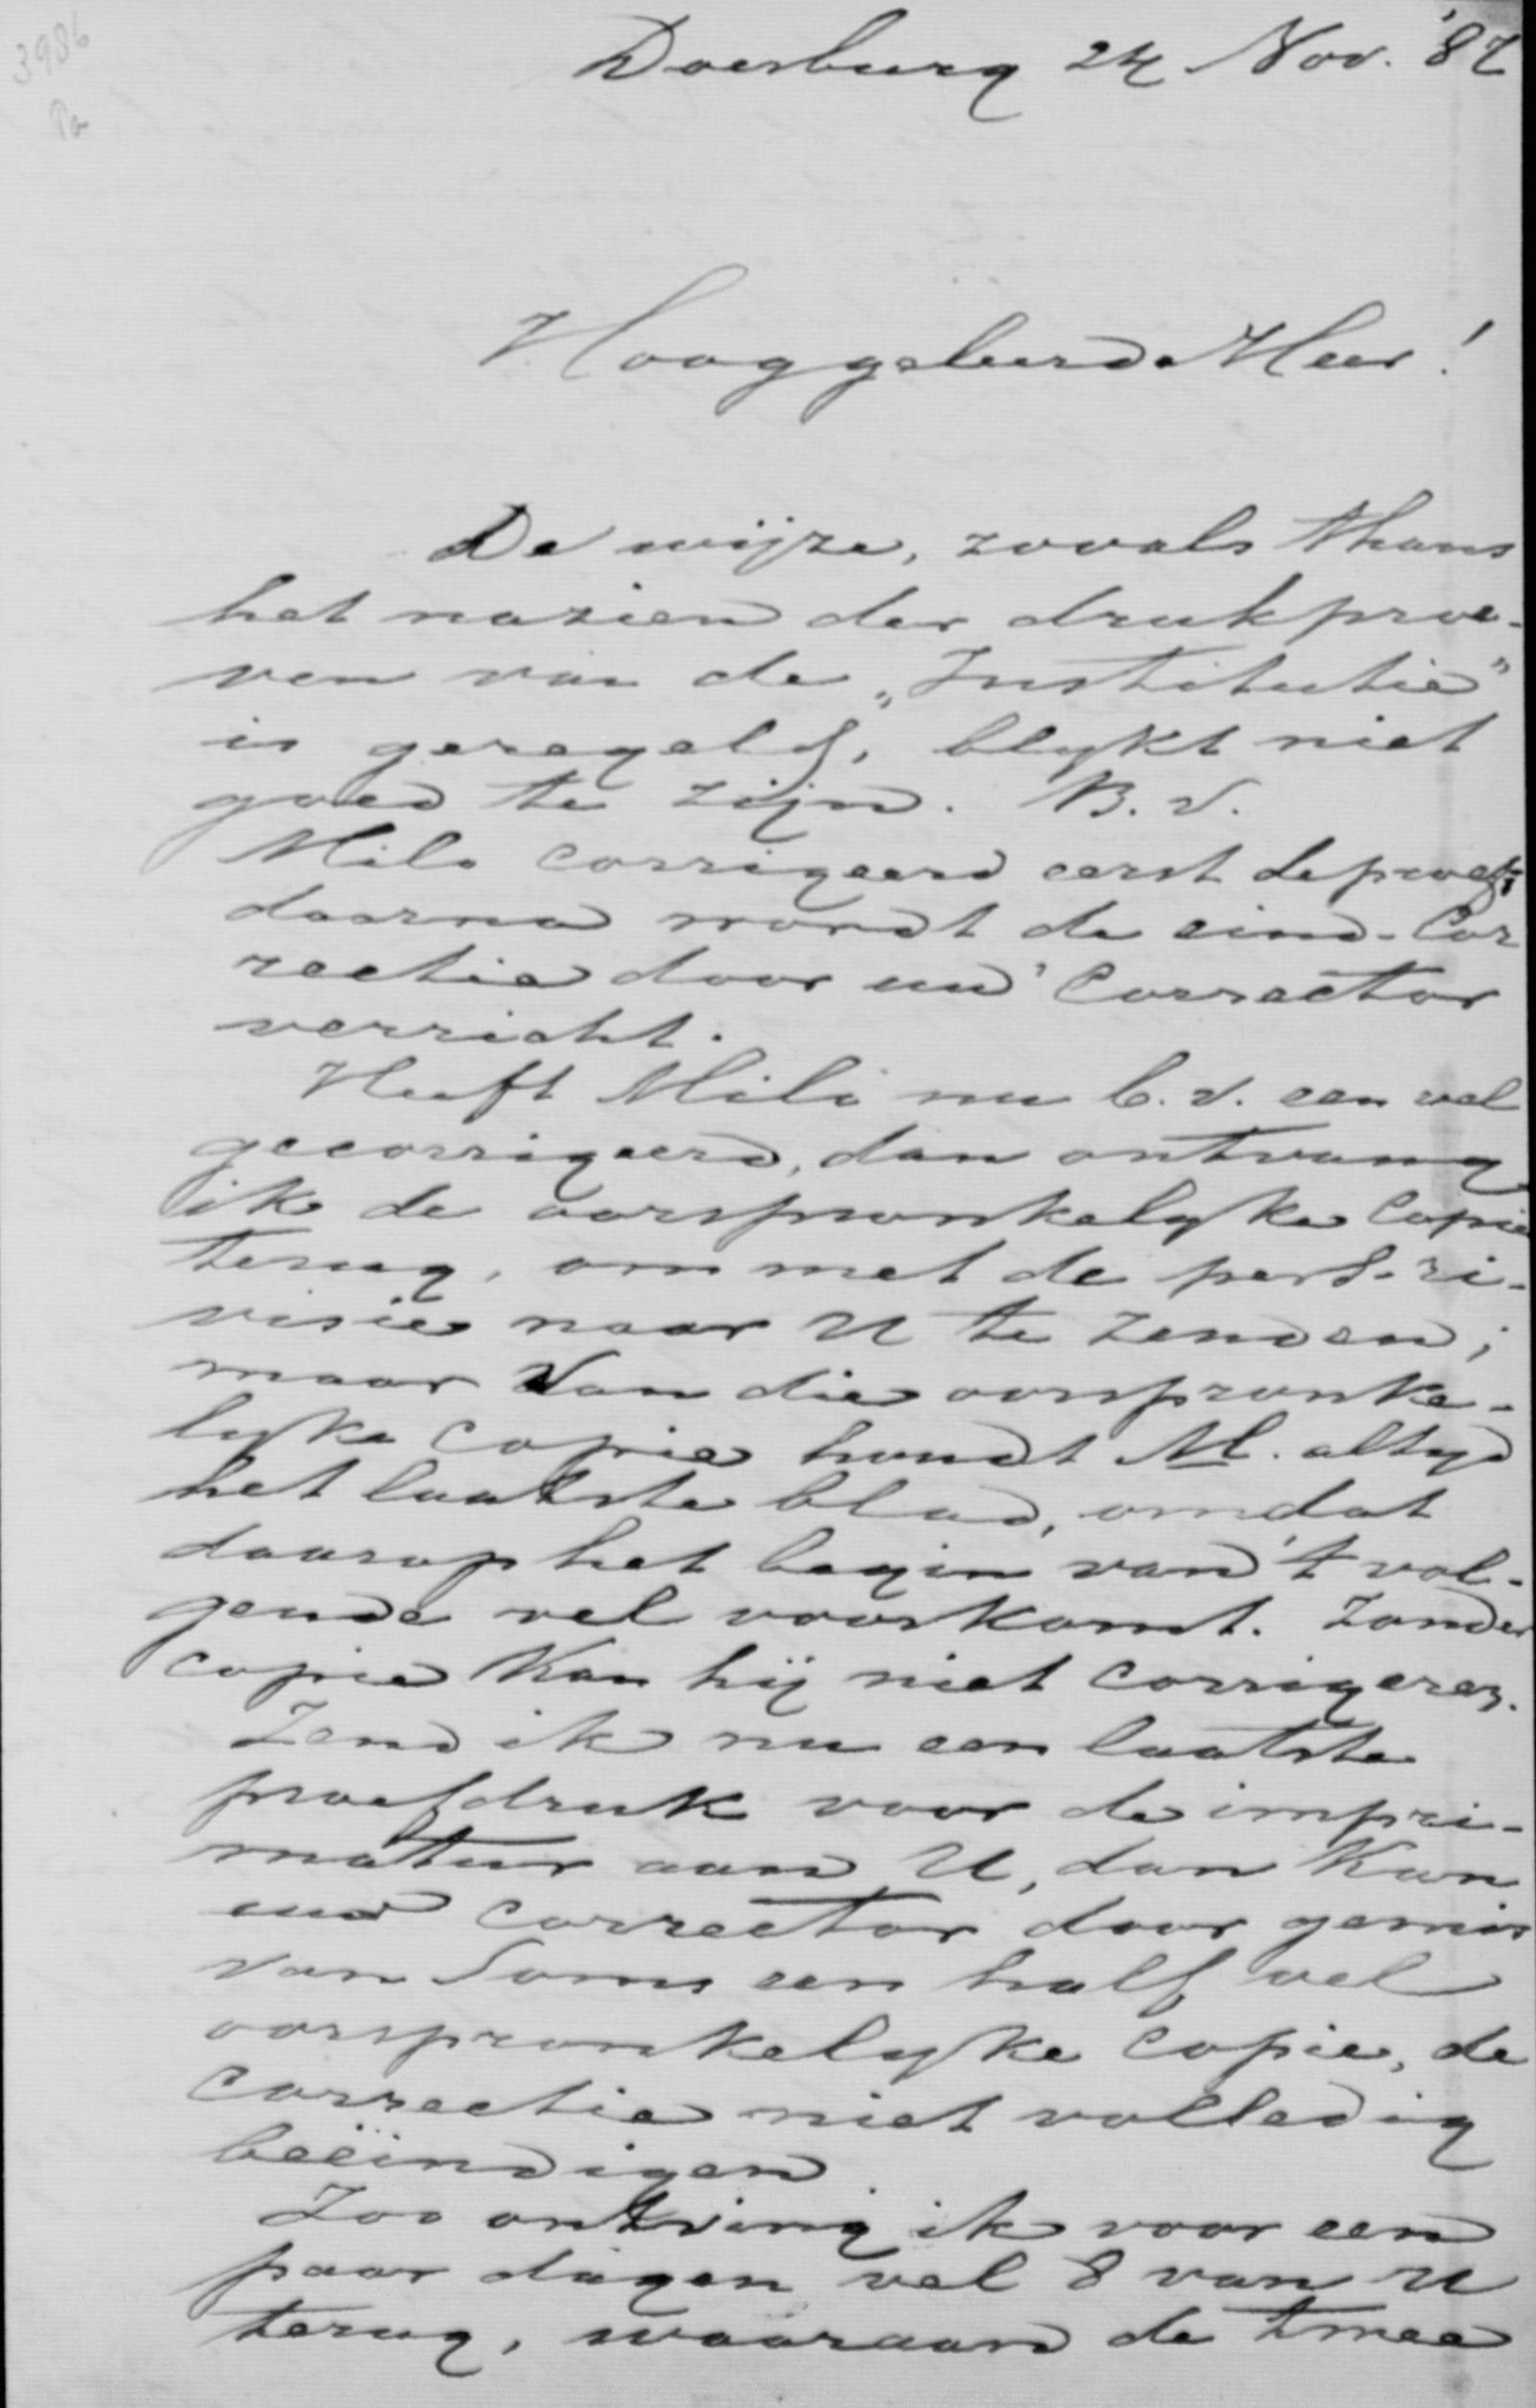 3986
Pa
Doesburg 24 Nov. '87
Hooggeleerde Heer!
De wijze, zooals thans
het nazien der drukproe-
ven van de „Institutie”
is geregeld, blykt niet
goed te zijn. B. v.
Milo corrigeerd eerst de proef;
daarna wordt de eind-Cor
rectie door een corrector
verricht.
Heeft Milo nu b.v. een vel
gecorrigeerd, dan ontvang
ik de oorspronkelyke Copie
terug, om met de pers-ri-
visie naar U te zenden;
maar van die oorspronke-
lyke Copie houdt M. altyd
het laatste blad, omdat
daarop het begin van 't vol-
gende vel voorkomt. Zonder
copie kan hij niet corrigeren.
Zend ik nu een laatste
proefdruk voor de impri-
matur aan U, dan kan
een corrector door gemis
van soms een half vel
oorspronkelyke copie, de
correctie niet volledig
beëindigen.
Zoo ontving ik voor een
paar dagen vel 8 van U
terug, waaraan de twee